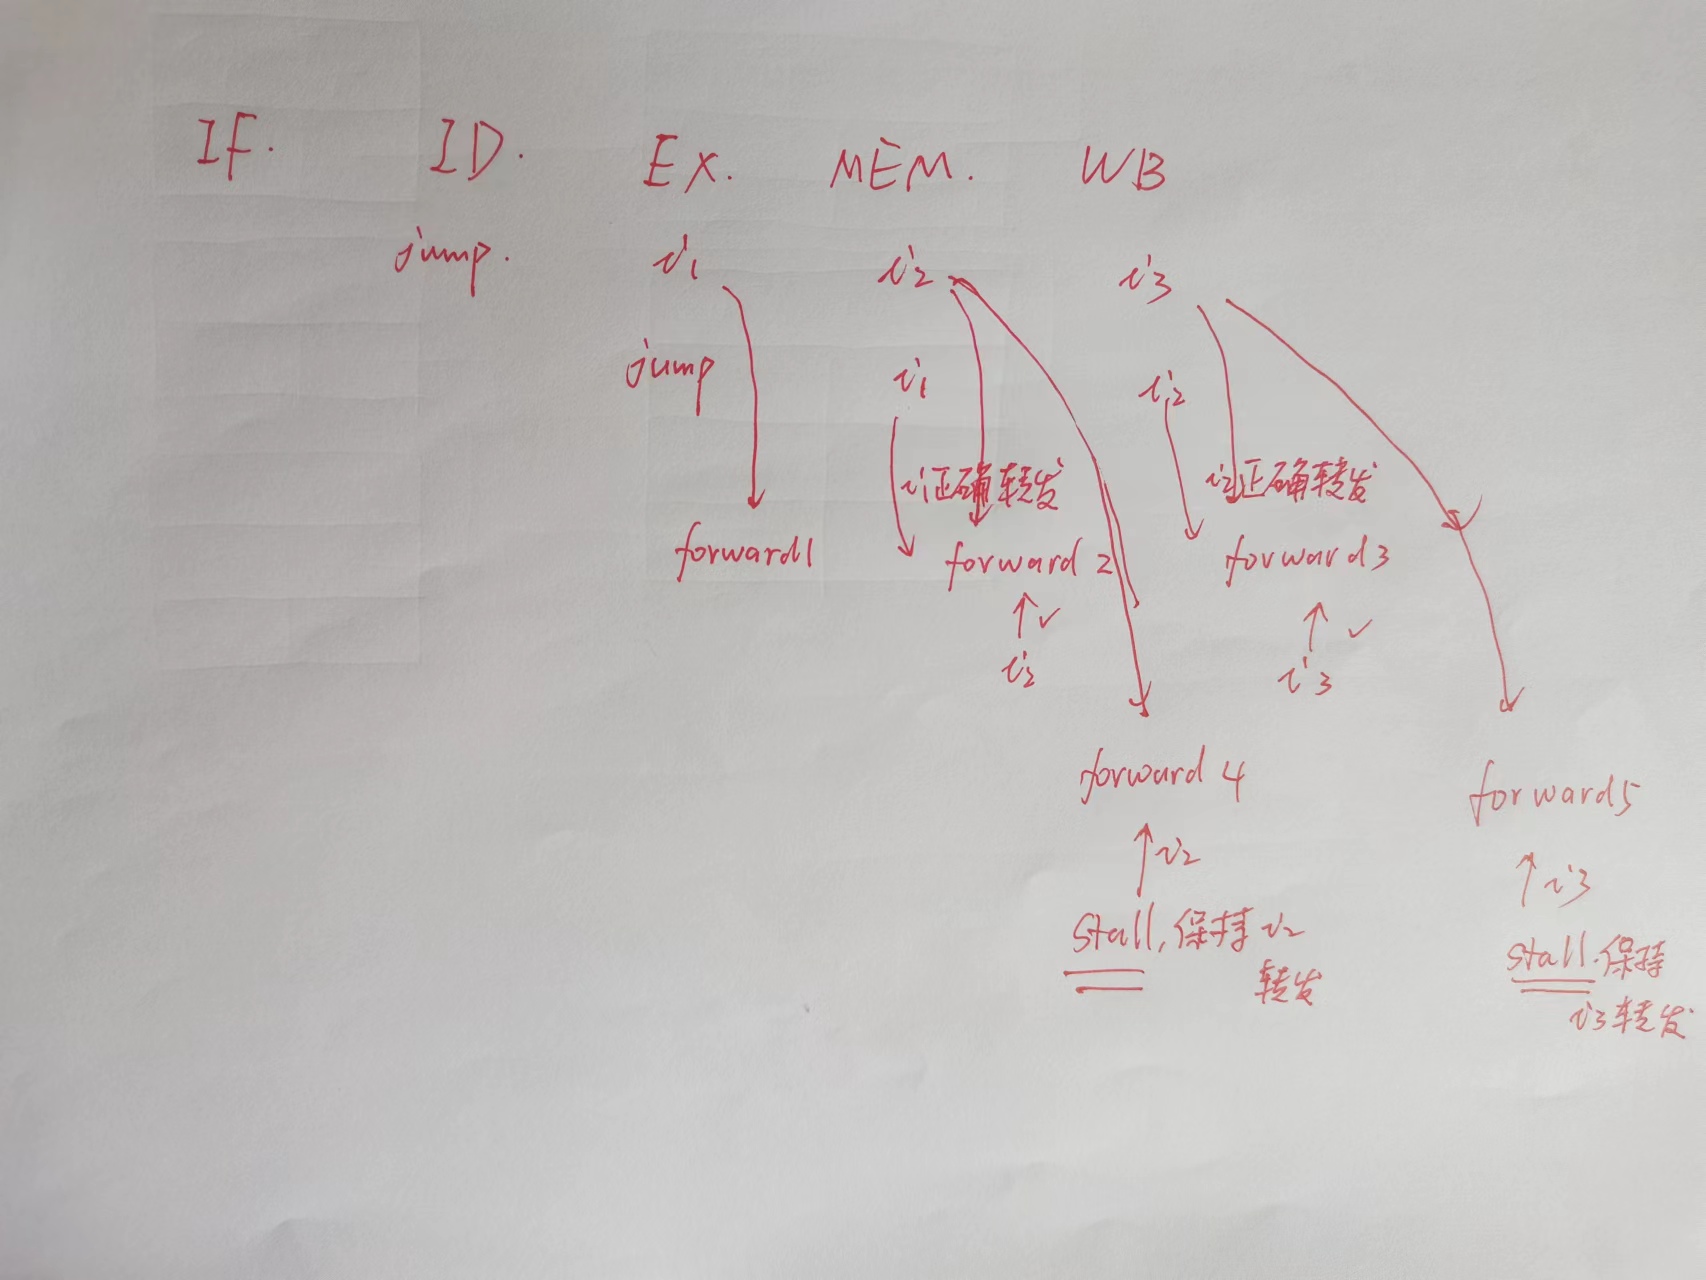 IF. ID. EX. MEM. WB
jump. i1 i2 i3
jump i1 i2
i1正确转发 i2正确转发
forward1 forward2 forward3
↑✓ ↑✓
i2 i3
forward4 forward5
↑i2 ↑i3
stall,保持i2 stall.保持
转发 i3转发